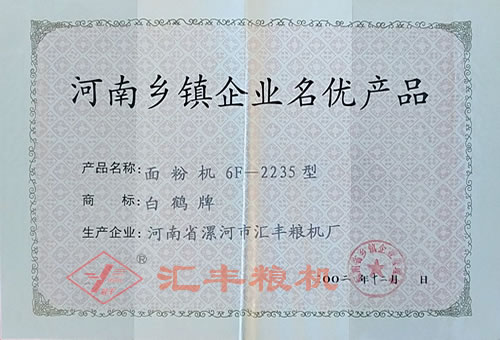 河南乡镇企业名优产品
产品名称: 面粉机 6F—2235型
商 标: 白鹤牌
生产企业: 河南省漯河市汇丰粮机厂
® 汇丰粮机
二〇〇二年十二月 日